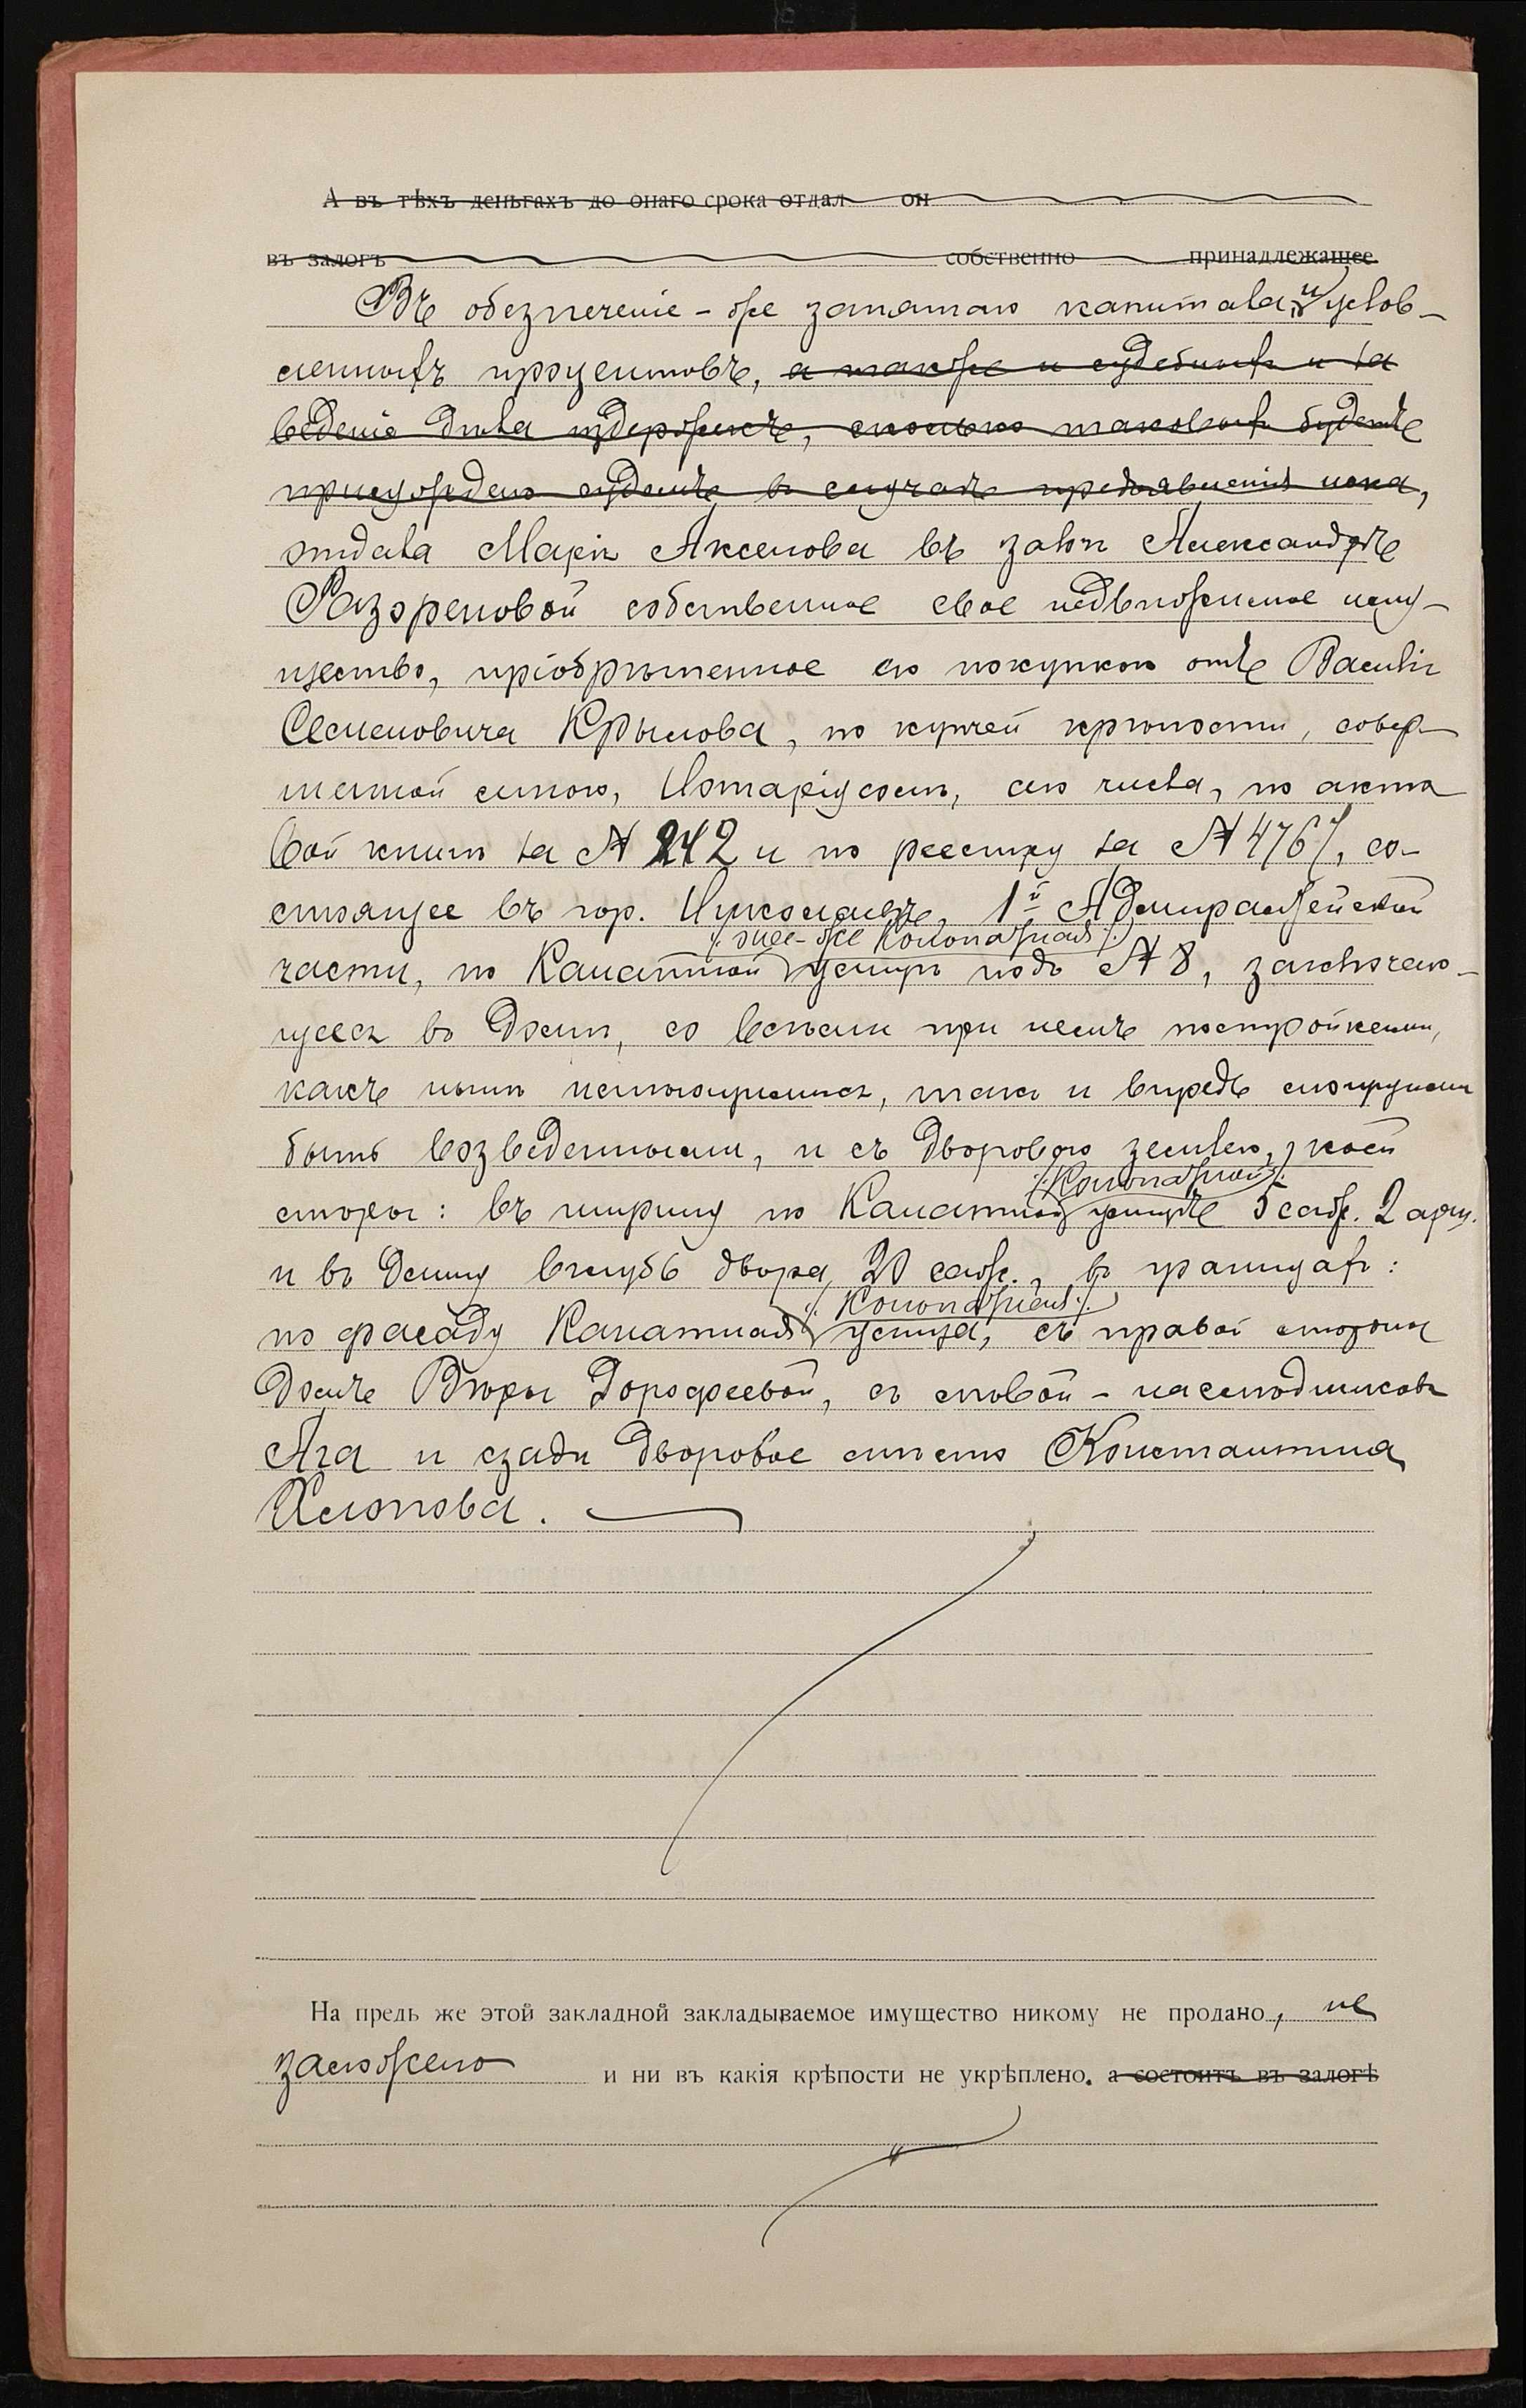 А въ тѣхъ деньгахъ до онаго срока отдал он
въ залогъ собственно принадлежащее
Въ обезпеченіе-же занятаго капитала и услов-
ленныхъ процентовъ, а также и судебныхъ и за
веденіе дѣла издержекъ, сколько таковыхъ будетъ
присуждено судомъ въ случаѣ предъявленія иска,
отдала Марія Акселова въ залогъ Александрѣ
Разореновой собственное свое недвижимое иму-
щество, пріобрѣтенное ею покупкою отъ Василія
Семеновича Крылова, по купчей крѣпости, совер-
шенной мною, Нотаріусомъ, сего числа, по акто
вой книгѣ за № 242 и по реестру за № 4767, со-
стоящее въ гор. , 1й Адмиралтейской
/: она-же Конопатная :/
части, по Канатной улицѣ подъ № 8, заключаю-
щееся въ домѣ, со всѣми при немъ постройками,
какъ нынѣ имѣющимися, такъ и впредь могущими
быть возведенными, и съ дворовою землею, коей
/: Конопатной :/
мѣры: въ ширину по Канатной улицѣ 5 саж. 2 арш.
и въ длину вглубь двора 20 саж., въ границахъ:
/: Конопатная :/
по фасаду Канатная улица, съ правой стороны
домъ Вѣры Дорофеевой, съ лѣвой - наслѣдниковъ
Ага и сзади дворовое мѣсто Константина
Хлопова.
На предь же этой закладной закладываемое имущество никому не продано, не
заложено и ни въ какія крѣпости не укрѣплено. а состоитъ въ залогѣ